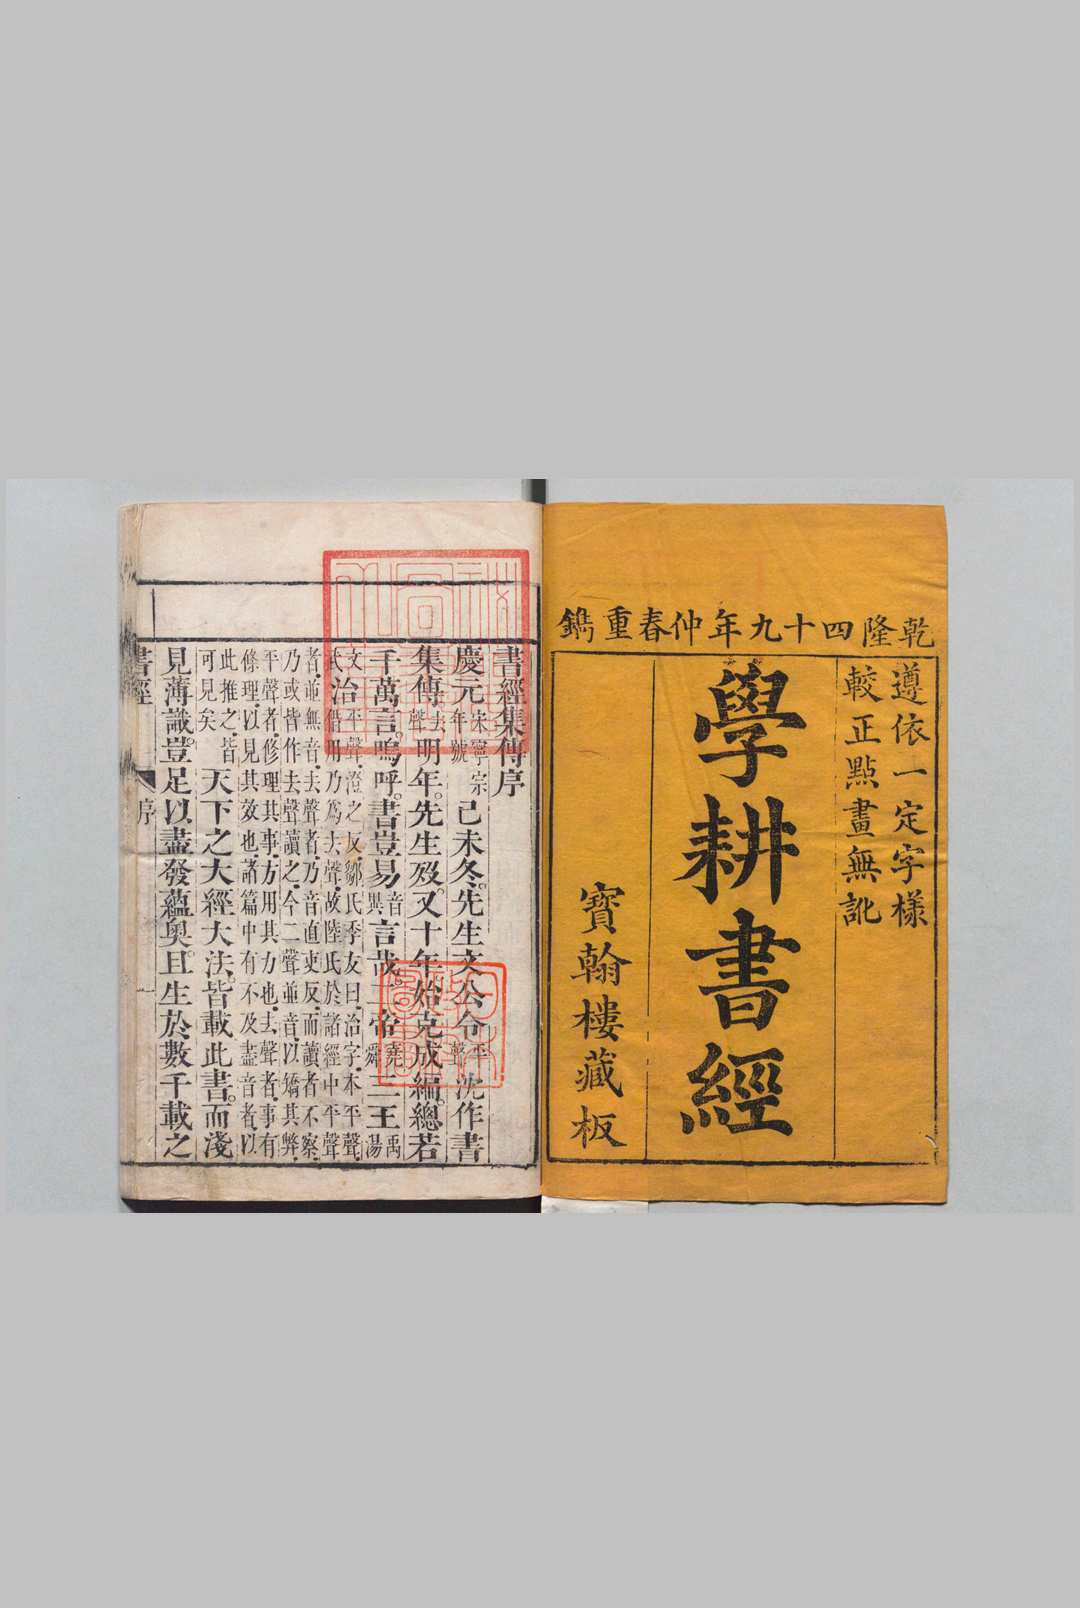 乾隆四十九年仲春重鐫
遵依一定字樣
較正點畫無訛
學耕書經
寶翰樓藏板
書經集傳序
慶元宋寧宗年號己未冬。先生文公令平聲沈作書
集傳去聲。明年。先生歿。又十年始克成編。總若
千萬言。嗚呼。書豈易音異言哉。二帝堯舜三王禹湯
文武治平聲.澄之反.鄒氏季友曰.治字本平聲.借用乃爲去聲.故陸氏於諸經中平聲
者.並無音.去聲者.乃音直吏反.而讀者不察.乃或皆作去聲讀之.今二聲並音.以矯其弊.
平聲者.修理其事.方用其力也.去聲者.事有條理.以見其效也.諸篇中有不及盡音者.以
此推之.皆可見矣天下之大經大法。皆載此書。而淺
見薄識。豈足以盡發蘊奧。且生於數千載之
書經 序 一